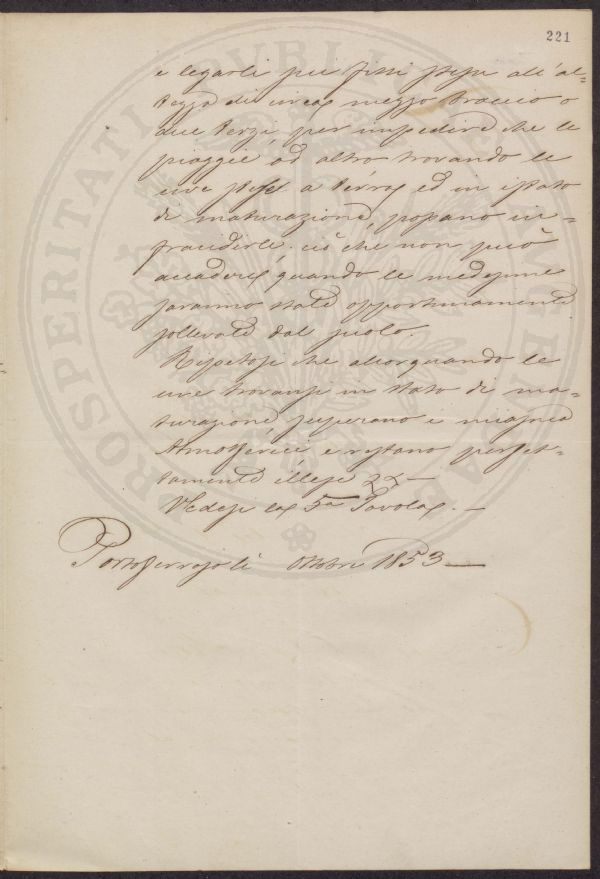 221
e legarli piu fitti stessi all'al=
tezza di circa mezzo braccio o
due terzi, per impedire che le
pioggie, od altro trovando le
uve stese a terra ed in istato
di maturazione, possano in=
fracidirle. ciò che non può
accadere, quando le medesime
saranno state opportunamente
sollevate dal suolo.
Ripetesi che allorquando le
uve trovansi in stato di ma=
turazione superano i miasmi
Atmosferici e restano perfet=
tamente illese
Vedesi la 5a Tavola. —
Portoferrajo li Ottobre 1853 —
PROSPERITATI PUBLICAE AUGENDAE